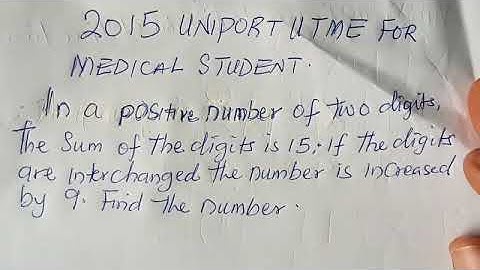 2015 UNIPORT UTME FOR
MEDICAL STUDENT.
In a positive number of two digits,
the Sum of the digits is 15. If the digits
are interchanged the number is increased
by 9. Find the number.